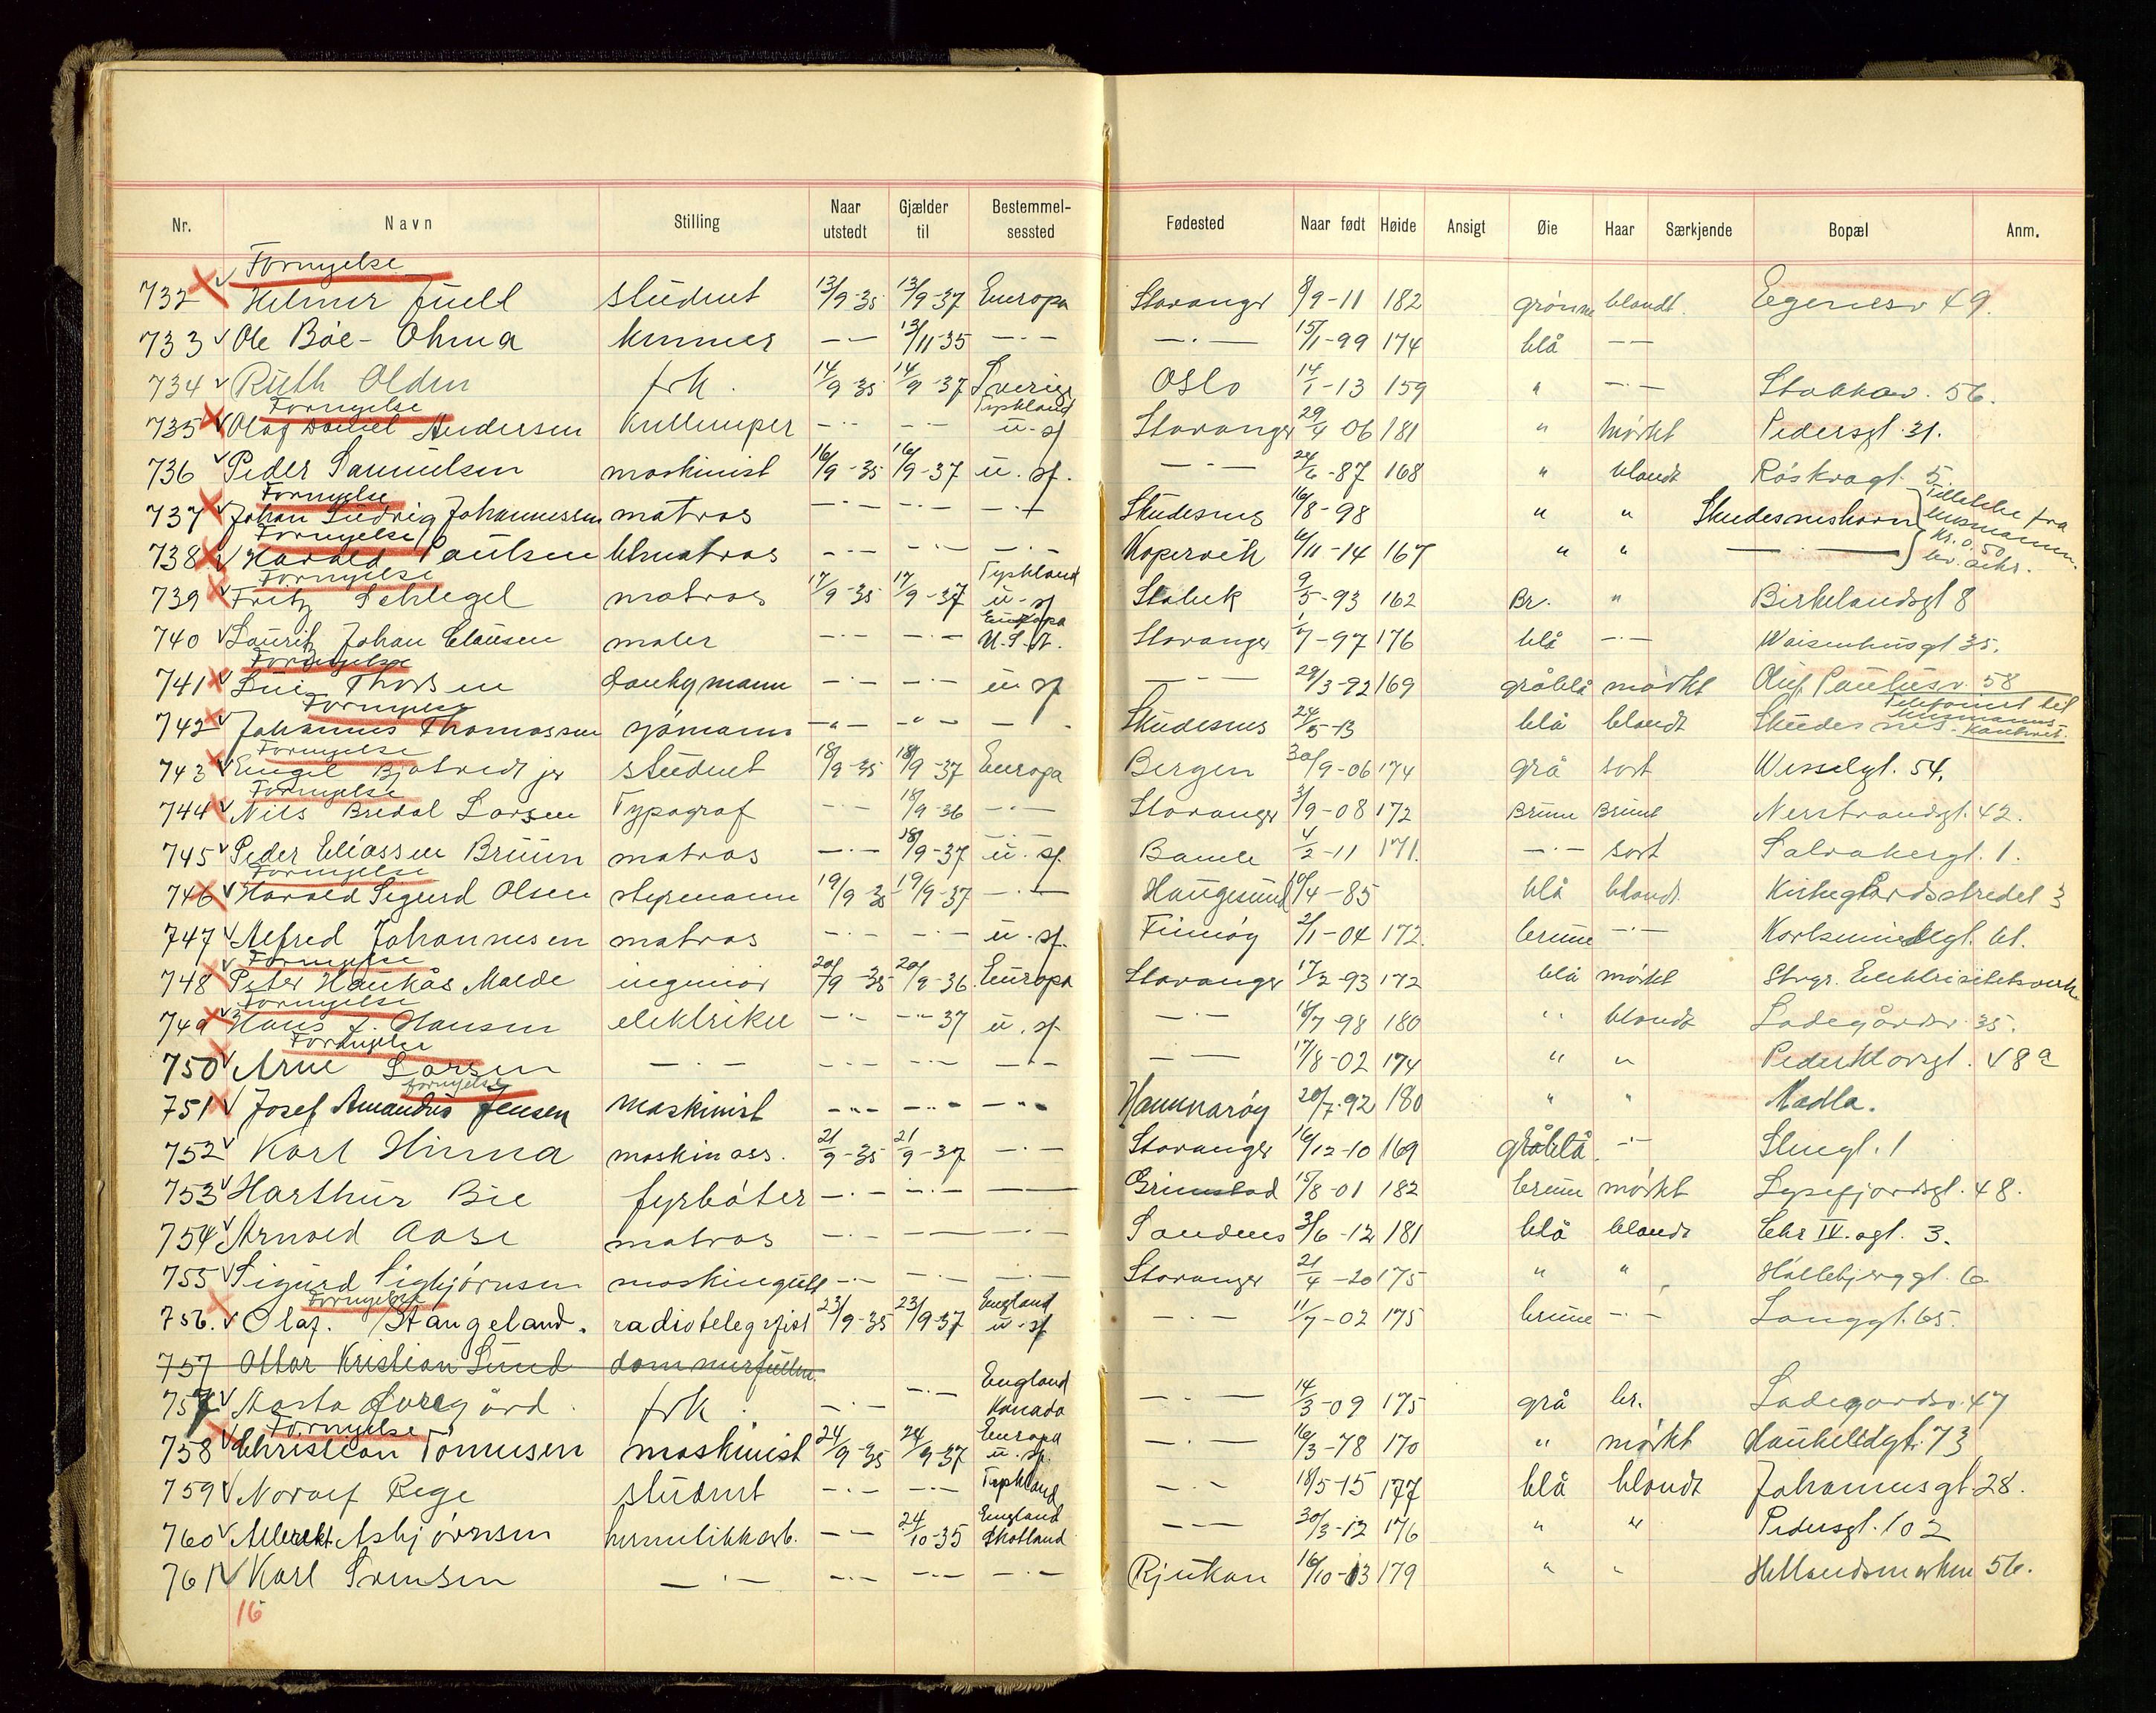 Nr. Navn Stilling Naar utstedt Gjælder til Bestemmelsessted Fødested Naar født Høide Ansigt Øie Haar Særkjende Bopæl Anm.
Fornyelse
732 Helmer Juell student 13/9-35 13/9-37 Europa Stavanger 8/9-11 182 grønne blondt Egenesv 49.
733 Ole Bøe-Ohma 13/11-35 15/1-99 174 blå
734 Ruth Olden frk. 14/9-35 14/9-37 Sverige Oslo 14/1-13 159 " Stokkav. 56.
Fornyelse Tyskland
735 Olaf Daniel Andersen Kullemper u.sf Stavanger 29/4 06 181 " Mörkt Pedersgt. 31.
736 Peder Samuelsen maskinist 16/9-35 16/9-37 u.sf. 24/6-87 168 " blondt Röskvagt. 5.
Fornyelse
737 Johan Ludvig Johannessen matros Skudesnes 16/8-98 " " Skudesneshavn
Fornyelse
738 Harald Paulsen lettmatros Kopervik 6/11-14 167 " "
Kr. 0.50
Fornyelse Tyskland
739 Fritz Schlegel matros 17/9-35 17/9-37 u.sf Stabek 9/5-93 162 Br. " Birkelandsgt 8
Europa
740 Lauritz Johan Clausen maler U.S.A. Stavanger 1/7-97 176 blå Waisenhusgt 35.
Fornyelse
741 Thorsen donkymann u.sf 29/3-92 169 gråblå mörkt Oluf Paulusv. 58
Fornyelse
742 Johannes Thomassen sjömann Skudesnes 24/5-13 blå blondt Skudesnes
Fornyelse
743 Engel Bjotvedt jr student 18/9-35 18/9-37 Europa Bergen 30/9-06 174 grå sort Wesselgt. 54.
Fornyelse
744 Nils Bredal Larsen Typograf 18/9-36 Stavanger 3/9-08 172 Brune Brunt Nerstrandsgt. 42.
745 Peder Eliassen Bruun matros 18/9-37 u.sf. Bamle 4/2-11 171. sort Solvabergt. 1.
Fornyelse
746 Harald Sigurd Olsen styrmann 19/9 35 19/9-37 Haugesund 10/4-85 blå blondt Kirkegårdsstredet 3
747 Alfred Johannesen matros u.sf. Finnöy 2/1-04 172. brune Karlsminnegt. 61.
Fornyelse
748 Peter Haukås Malde ingeniör 20/9-35 20/9-36. Europa Stavanger 17/2-93 172 blå mörkt Stvgr. Elektrisitetsverk
Fornyelse
749 Hans J. Hansen elektriker 37 u.sf. 18/7 98 180 " blondt Ladegårdsv. 35.
Fornyelse
750 Arne Larsen 17/8-02 174 " " Peder Klovsgt. 48 a
fornyelse
751 Josef Amandus Jensen maskinist Hammarøy 20/7.92 180 " " Madla.
752 Karl Hinna maskinass. 21/9-35 21/9-37 Stavanger 16/12-10 169 gråblå. Stengt. 1
753 Harthur Bie fyrböter Grimstad 15/8-01 182 brune mörkt Lysefjordsgt. 48.
754 Arnold Aase matros Sandnes 3/6-12 181 blå blondt Chr IV. agt. 3.
755 Sigurd Sigbjörnsen maskingutt Stavanger 21/4-20 175 " " Höllebjerggt. 6
Fornyelse England
756. Olaf. Stangeland. radiotelegrafist 23/9-35 23/9-37 u.sf 11/7-02 175 brune Langgt. 65.
757 Ottar Kristian Sund
England
757 Marta Auregård. frk. Kanada 14/3-09 175 grå br. Ladegardsv. 47
Fornyelse Europa
758 Christian Tönnesen maskinist 24/9-35 24/9-37 u.sf. 16/3-78 170 " mörkt Haukelidgt. 73
759 Norolf Rege student Tyskland 18/5-15 177 blå blondt Johannesgt. 28.
England
760 Albrekt Asbjörnsen hermetikkarb. 24/10-35 Skotland 30/3-12 176 " " Pedersgt. 102
761 Karl Svensen Rjukan 16/10-13 179 " " Hetlandsmarken 56.
16